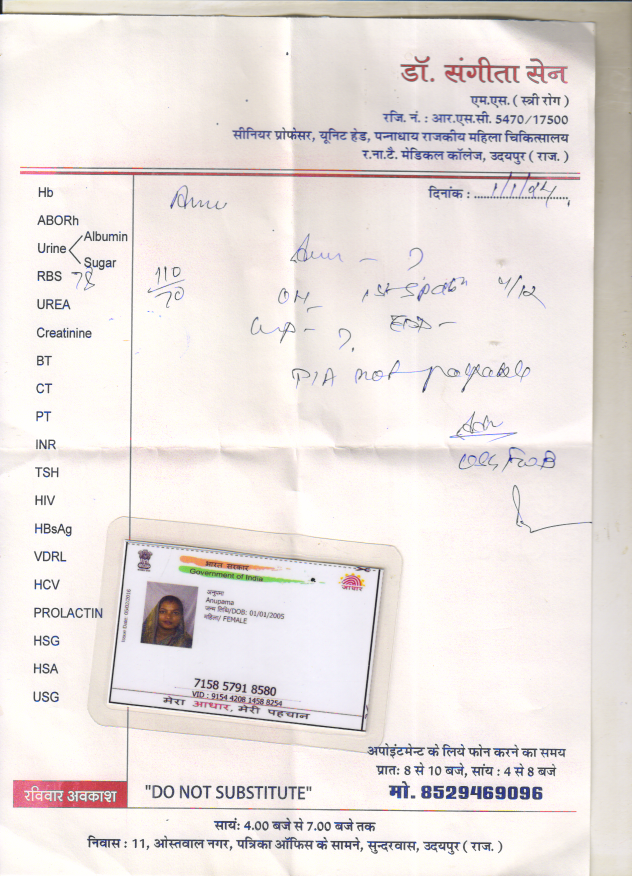 डॉ. संगीता सेन
एम.एस. ( स्त्री रोग )
रजि. नं. : आर.एस.सी. 5470/17500
सीनियर प्रोफेसर, यूनिट हेड, पन्नाधाय राजकीय महिला चिकित्सालय
र.ना.टै. मेडिकल कॉलेज, उदयपुर ( राज. )
दिनांक : 1/1/24
Hb
ABORh
Urine Albumin
Sugar
RBS 78
110/70
UREA
Creatinine
BT
CT
PT
INR
TSH
HIV
HBsAg
VDRL
HCV
PROLACTIN
HSG
HSA
USG
P/A not
भारत सरकार
Government of India
आधार
Issue Date: 05/02/2016
अनुपमा
Anupama
जन्म तिथि/DOB: 01/01/2005
महिला/ FEMALE
7158 5791 8580
VID : 9154 4208 1458 8254
मेरा आधार, मेरी पहचान
अपोइंटमेन्ट के लिये फोन करने का समय
प्रातः 8 से 10 बजे, सांय : 4 से 8 बजे
रविवार अवकाश
"DO NOT SUBSTITUTE"
मो. 8529469096
सायंः 4.00 बजे से 7.00 बजे तक
निवास : 11, ओस्तवाल नगर, पत्रिका ऑफिस के सामने, सुन्दरवास, उदयपुर ( राज. )